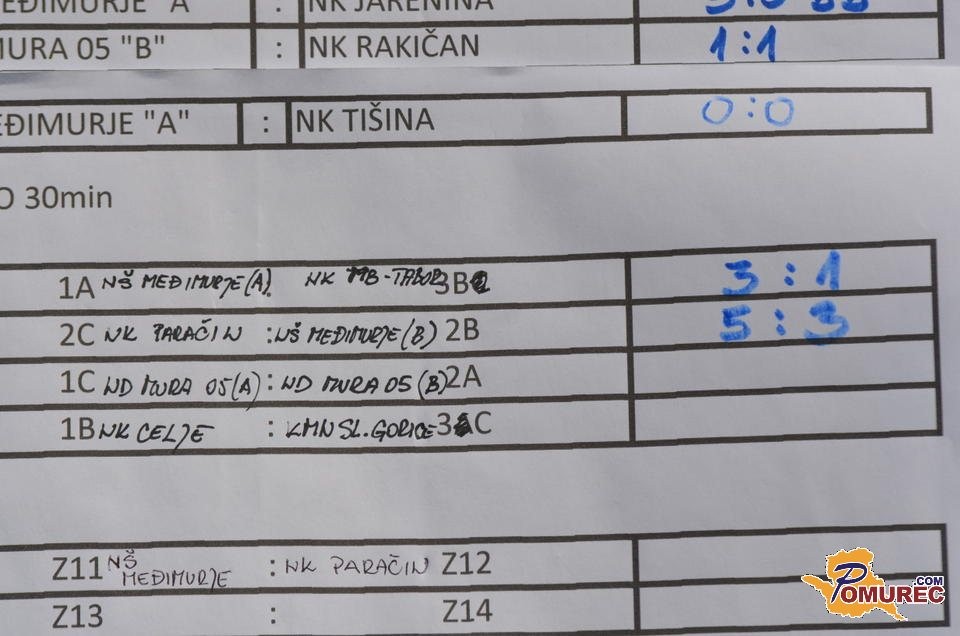 EĐIMURJE "A" : NK JARENINA
MURA 05 "B" : NK RAKIČAN 1:1
EĐIMURJE "A" : NK TIŠINA 0:0
O 30min
1A NŠ MEĐIMURJE (A) NK MB-TABOR 3B 3:1
2C NK PARAČIN : NŠ MEĐIMURJE (B) 2B 5:3
1C ND MURA 05 (A) : ND MURA 05 (B) 2A
1B NK CELJE : KMN SL. GORICE 3 C
Z11 NŠ MEĐIMURJE : NK PARAČIN Z12
Z13 : Z14
POMUREC.COM